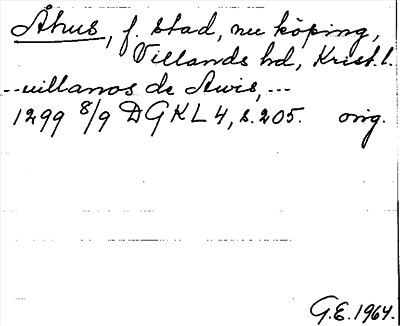 Åhus, f. stad, nu köping,
Villands hd, Krist. l.
--villanos de Awis,---
1299 8/9 DGKL 4, s. 205. orig.
G.E. 1964.